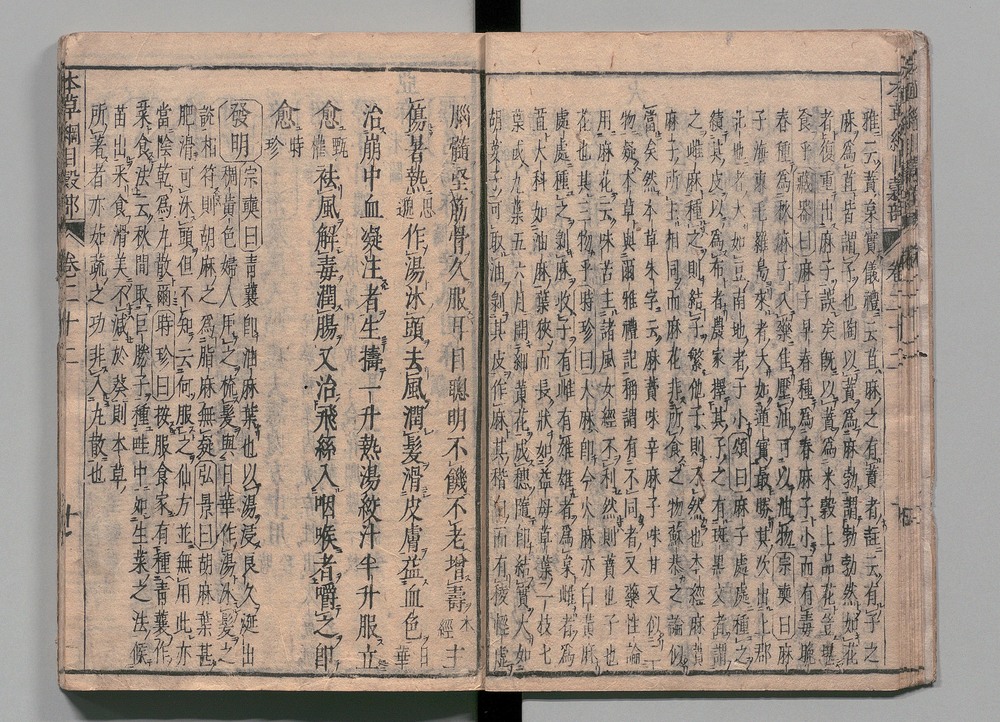 雅云蕡枲實儀禮云苴麻之有蕡者註云有子之
麻爲苴皆謂子也陶以蕡爲麻勃謂勃勃然如花
者復重出麻子誤矣既以蕡爲米穀上品花豈堪
食乎藏器曰麻子早春種爲春麻子小而有毒晚
春種爲秋麻子入藥佳壓油可以油物宗奭曰麻
子海東毛羅島來者大如蓮實最勝其次出上郡
北地者大如豆南地者子小頌曰麻子處處種之
績其皮以爲布者農家擇其子之有斑黑文者謂
之雌麻種之則結子繁他子則不然也本經麻蕡
麻子所主相同而麻花非所食之物蘇恭之論似
當矣然本草朱字云麻蕡味辛麻子味甘又似二
物疑本草與爾雅禮記稱謂有不同者又藥性論
用麻花云味苦主諸風女經不利然則蕡也子也
花也其三物乎時珍曰大麻即今火麻亦曰黃麻
處處種之剝麻收子有雌有雄雄者爲枲雌者爲
苴大科如油麻葉狹而長狀如益母草葉一枝七
葉或九葉五六月開細黃花成穗隨即結實大如
胡荽子可取油剝其皮作麻其稭白而有稜輕虛
腦髓堅筋骨久服耳目聰明不饑不老增壽本經主
傷暑熱思邈作湯沐頭去風潤髮滑皮膚益血色日華
治崩中血凝注者生擣一升熱湯絞汁半升服立
愈甄權祛風解毒潤腸又治飛絲入咽喉者嚼之即
愈時珍
發明宗奭曰青蘘即油麻葉也以湯浸良久涎出
稠黃色婦人用之梳髮與日華作湯沐髮之
說相符則胡麻之爲脂麻無疑弘景曰胡麻葉甚
肥滑可沐頭但不知云何服之仙方並無用此亦
當陰乾爲丸散爾時珍曰按服食家有種青蘘作
菜食法云秋間取巨勝子種畦中如生菜之法候
苗出采食滑美不減於葵則本草
所著者亦茹蔬之功非入丸散也
本草綱目穀部 卷二十二 十